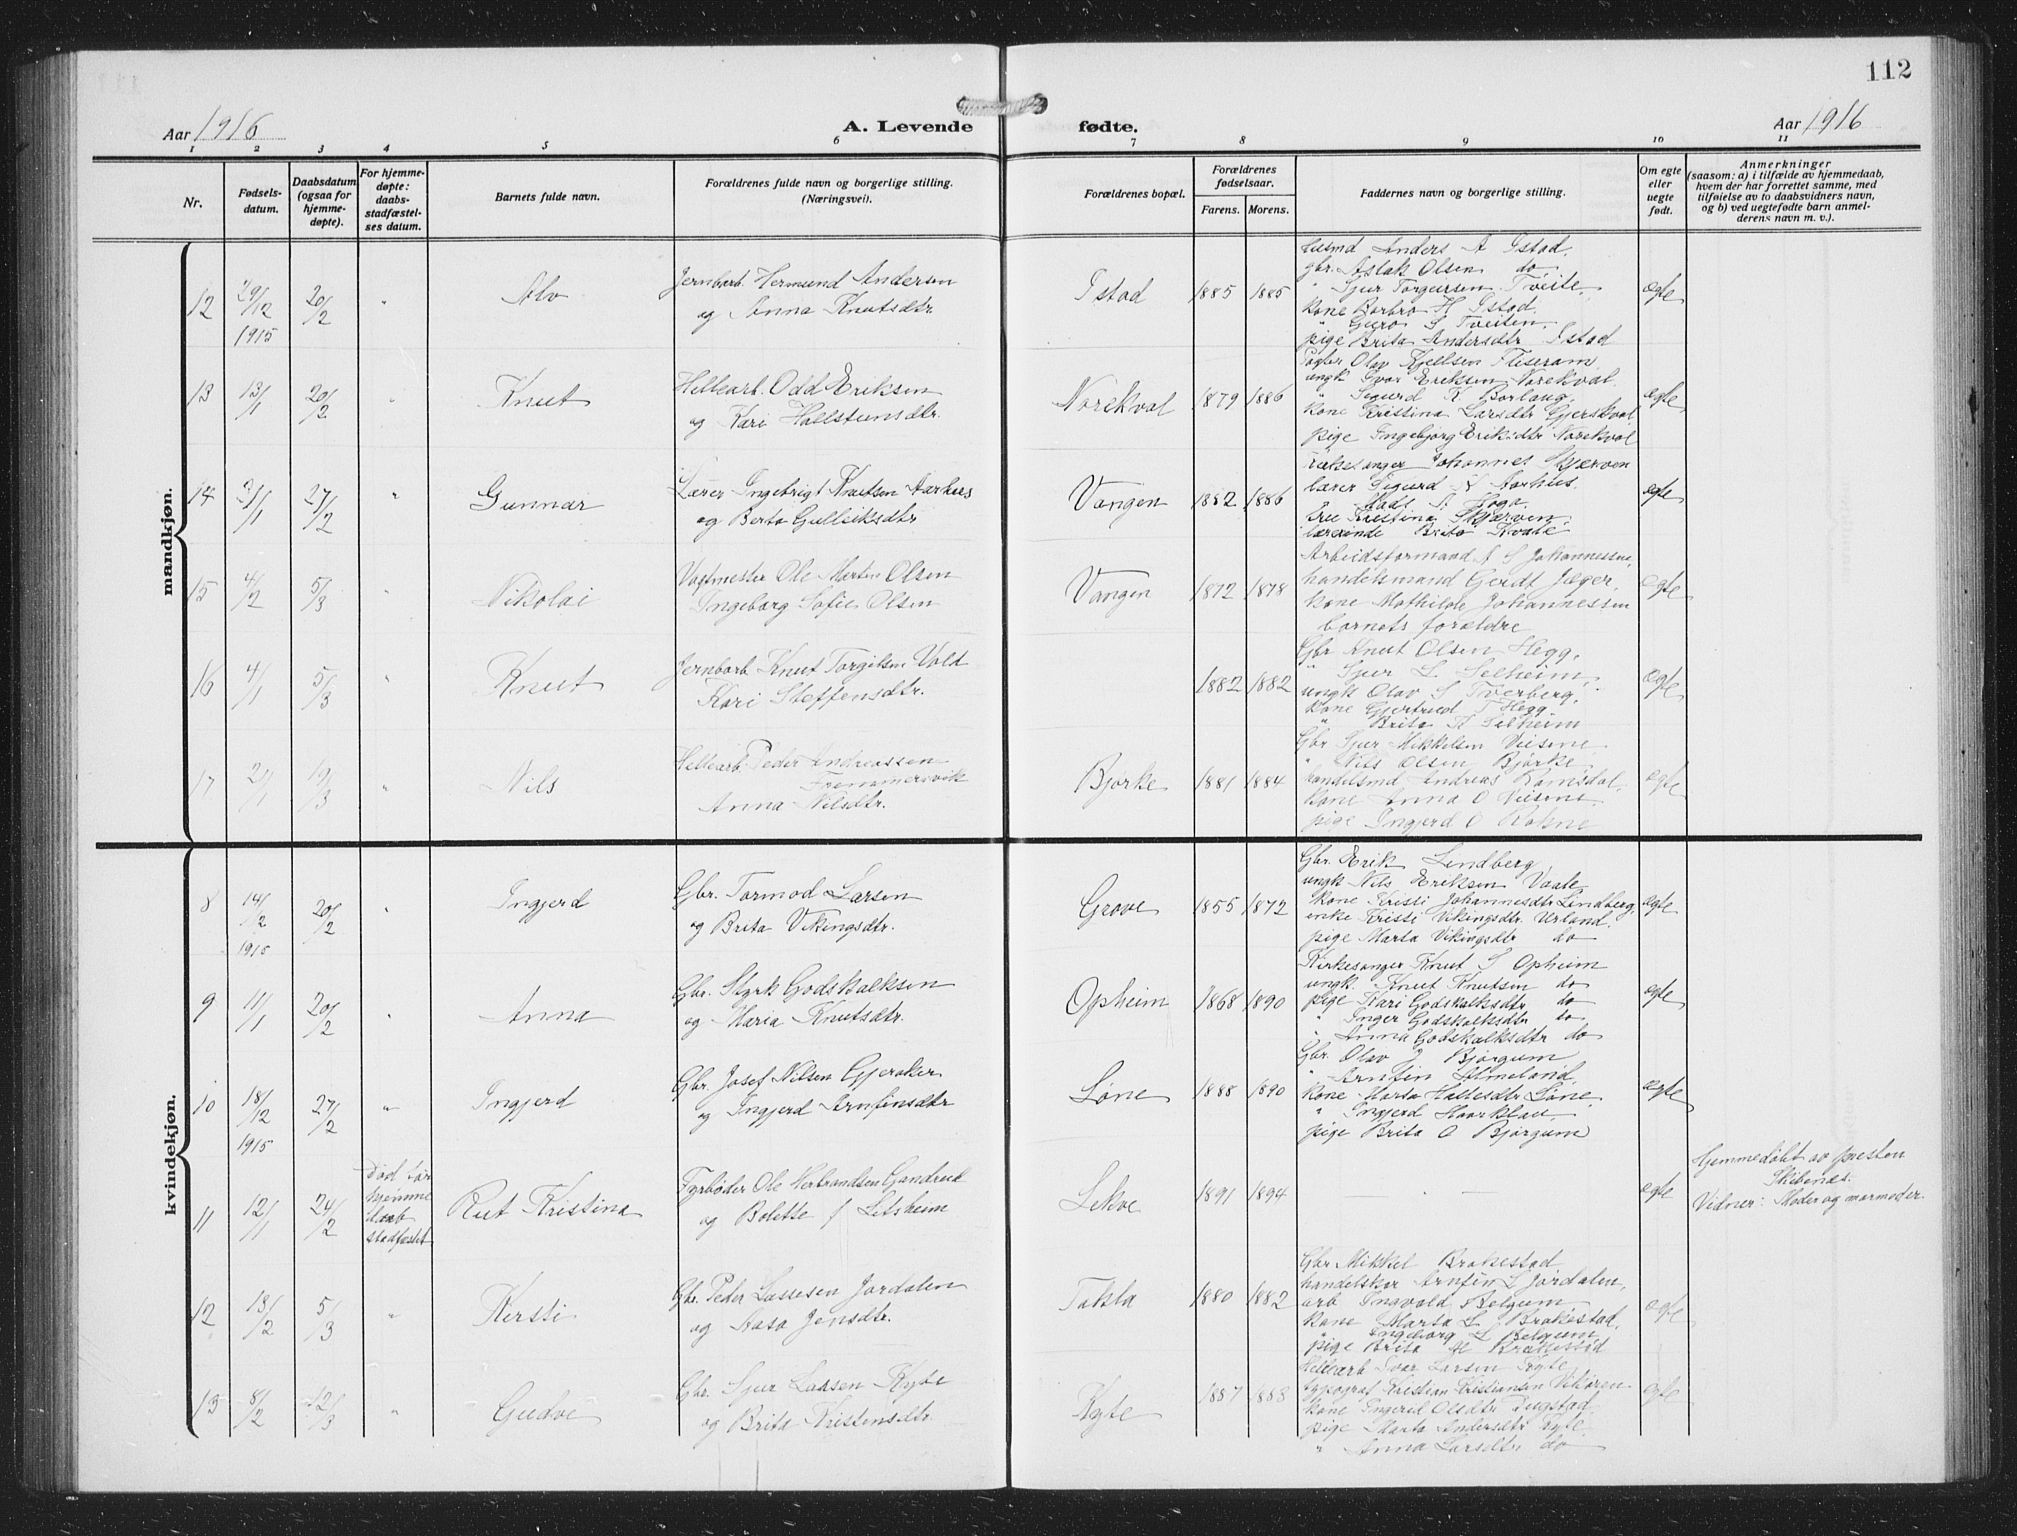 112
Aar 1916
A. Levende fødte.
Aar 1916
1 2 3 4 5 6 7 8 9 10 11
Nr.
Fødsels-
datum.
Daabsdatum
(ogsaa for
hjemme-
døpte).
For hjemme-
døpte:
daabs-
stadfæstel-
ses datum.
Barnets fulde navn.
Forældrenes fulde navn og borgerlige stilling.
(Næringsvei).
Forældrenes bopæl.
Forældrenes
fødselsaar.
Farens. Morens.
Faddernes navn og borgerlige stilling.
Om egte
eller
uegte
født.
Anmerkninger
(saasom: a) i tilfælde av hjemmedaab,
hvem der har forrettet samme, med
tilføielse av to daabsvidners navn,
og b) ved uegtefødte barn anmel-
derens navn m. v.).
mandkjøn.
12
29/12
1915
20/2
"
Jernbarb. Hermund Andersen
og Anna Knutsdtr
Istad
1885 1885
Anders A Istad.
gbr. Aslak Olsen do.
" Sjur Torgersen Tveite.
kone Barbro H Istad.
" Guro S Tveiten.
pige Brita Andersdtr Istad
egte
13
13/1
20/2
"
Knut
Hellearb. Odd Eriksen
og Kari Hallstensdtr.
Norekval
1879 1886
Olav Kjellsen Fliseram
ungk Ivar Eriksen Norekval.
" Sigurd K Borlaug.
kone Kristina Larsdtr Gjerskval
pige Ingebjørg Eriksdtr Norekval
egte
14
31/1
27/2
"
Gunnar
Lærer Ingebrigt Knutsen Aarhus
og Berta Gullsiksdtr
Vangen
1882 1886
Kirkesanger Johannes Skjerven
lærer Sigurd K Aarhus.
" Mads S.
Frue Kristina Skjerven.
lærerinde Brita Kvale
egte
15
4/2
5/3
"
Nikolai
Vagtmester Ole Martin Olsen
Ingeborg Sofie Olsen
Vangen
1872 1878
Arbeidsformand A S Johannessen,
handelsmand Gerdt Jæger,
kone Mathilde Johannessen
barnets forældre
egte
16
4/1
5/3
"
Knut
Jernbarb Knut Torgilsen Vold
Kari Steffensdtr.
1882 1882
Gbr Knut Olsen Hegg.
" Sjur L Selheim,
ungk Olav S Tverberg.
kone Gjertrud T Hegg.
" Brita A Selheim
egte
17
2/1
19/3
"
Nils
Hellearb. Peder Andreassen
Frammersvik
Anna Nilsdtr.
Bjørke
1881 1884
Gbr Sjur Mikkelsen Vesene
" Nils Olsen Bjørke
handelsmd Andreas Ramsdal.
kone Anna O Vesene.
pige Ingjerd O Rokne
egte
kvindekjøn.
8
14/12
1915
20/2
"
Ingjerd
Gbr. Tormod Larsen
og Brita Vikingsdtr.
Grove
1855 1872
Gbr. Erik Lindberg,
ungk Nils Eriksen Vaale
kone Kristi Johannesdtr Lindberg,
enke Kristi Vikingsdtr Urland.
pige Marta Vikingsdtr do
egte
9
11/1
20/2
"
Anna
Gbr. Styrk Godskalksen
og Maria Knutsdtr.
Opheim
1868 1890
Kirkesanger Knut S Opheim
ungk. Knut Knutsen do
pige Kari Godskalksdtr do
" Inger Godskalksdtr do
" Anna Godskalksdtr do
egte
10
18/12
1915
27/2
"
Ingjerd
Gbr. Josef Nilsen Gjeraker
og Ingjerd Arnfinsdtr
Løne
1888 1890
Gbr. Olav J Bjørgum
" Arnfin Almeland.
kone Marta Hallesdtr Løne.
" Ingjerd Haarklau
pige Brita O Bjørgum
egte
11
12/1
24/2
Død før
hjemme
daab
stadfæstet
Rut Kristina
Fyrbøder Ole Herbrandsen Gandrud
og Bolette f Letsheim
Lekve
1891 1894
— — —
egte
Hjemmedøbt av presten
Skibenæs.
Vidner: Moder og mormoder.
12
13/2
5/3
"
Kersti
Gbr. Peder Lassesen Jordalen
og Aasa Jensdtr.
Takla
1880 1882
Gbr Mikkel Brakestad
handelskar Arnfin L Jordalen,
arb Ingvald Belgum
kone Marta L Brakestad,
" Ingeborg L Belgum
pige Brita M Brakestad
egte
13
8/2
12/3
"
Gudve
Gbr. Sjur Larsen Kyte
og Brita Kristensdtr.
Kyte
1887 1888
Hellearb Ivar Larsen Kyte
typograf Kristian Kristiansen Vikøren
kone Ingerid Olsdtr Rugstad
pige Marta Andersdtr Kyte
" Anna Larsdtr do
egte